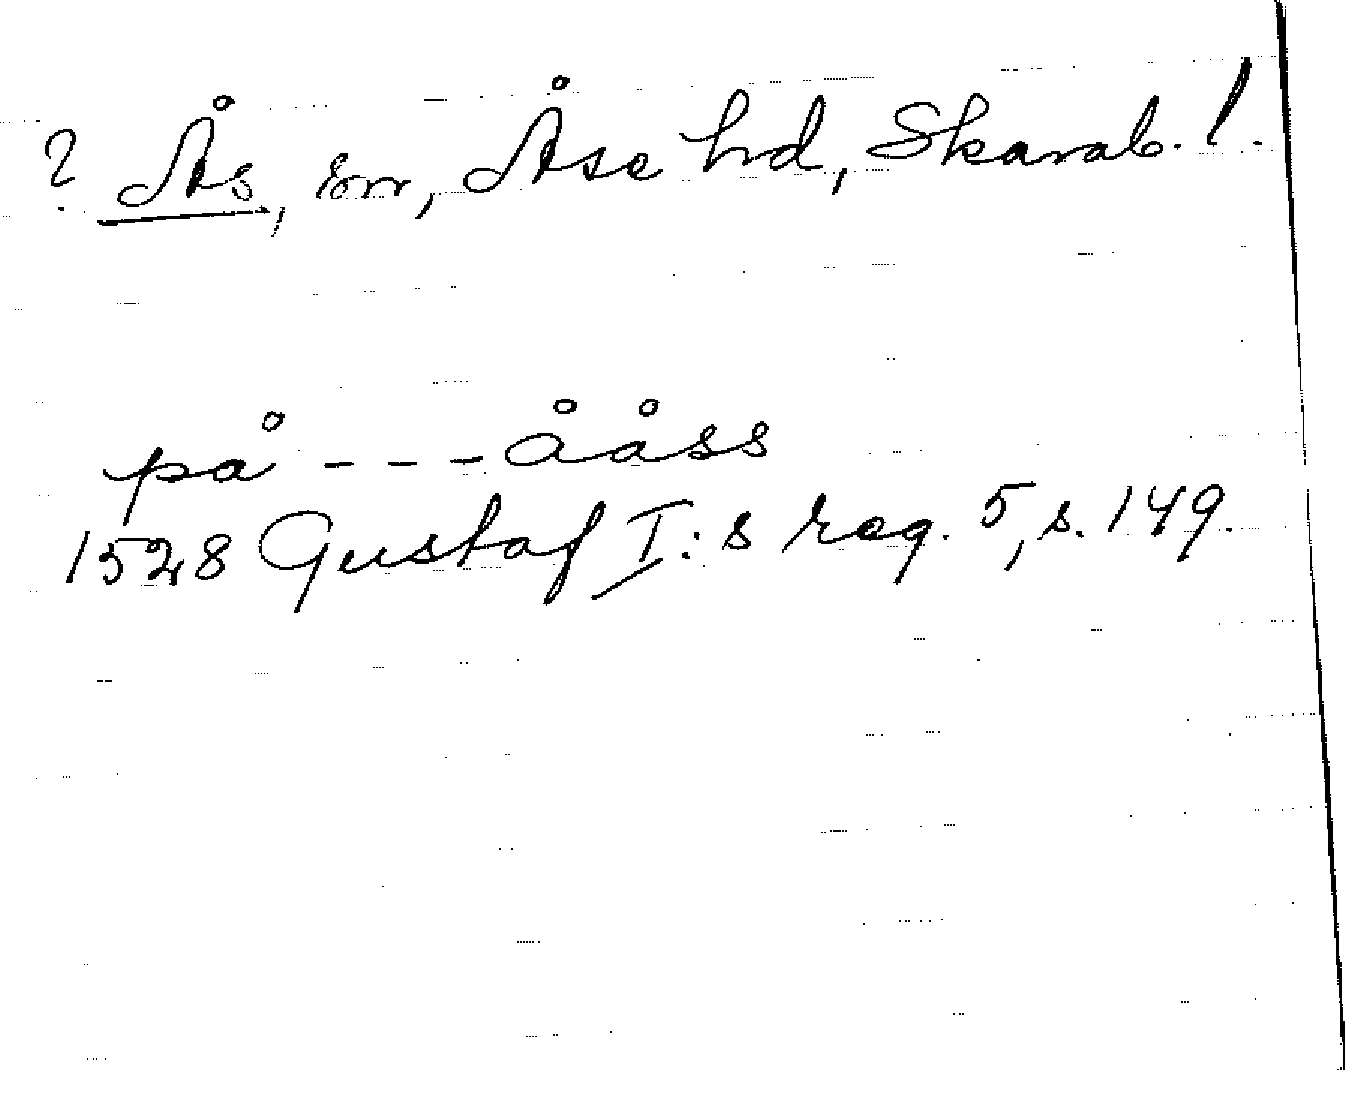 ? Ås, sn, Åse hd, Skarab. l.
på - - - ååss
1528 Gustaf I:s reg. 5, s. 149.